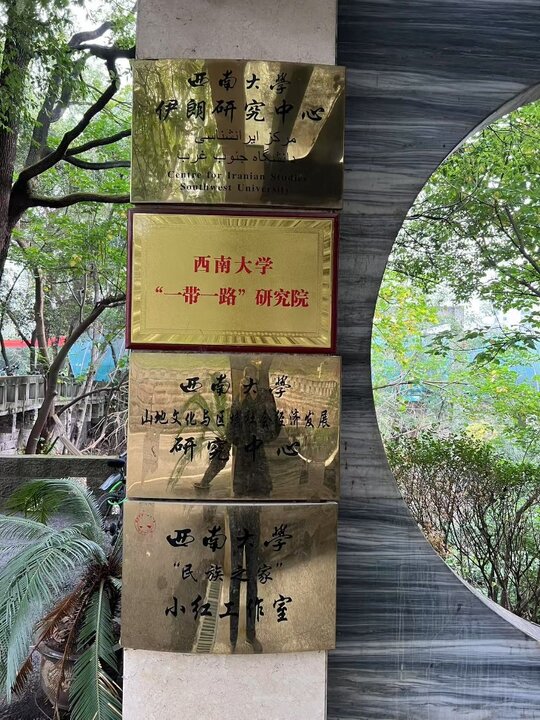 西南大学
伊朗研究中心
مرکز ایرانشناسی
دانشگاه جنوب غرب
Centre for Iranian Studies
Southwest University
西南大学
“一带一路”研究院
西南大学
山地文化与区域社会经济发展
研究中心
西南大学
“民族之家”
小红工作室